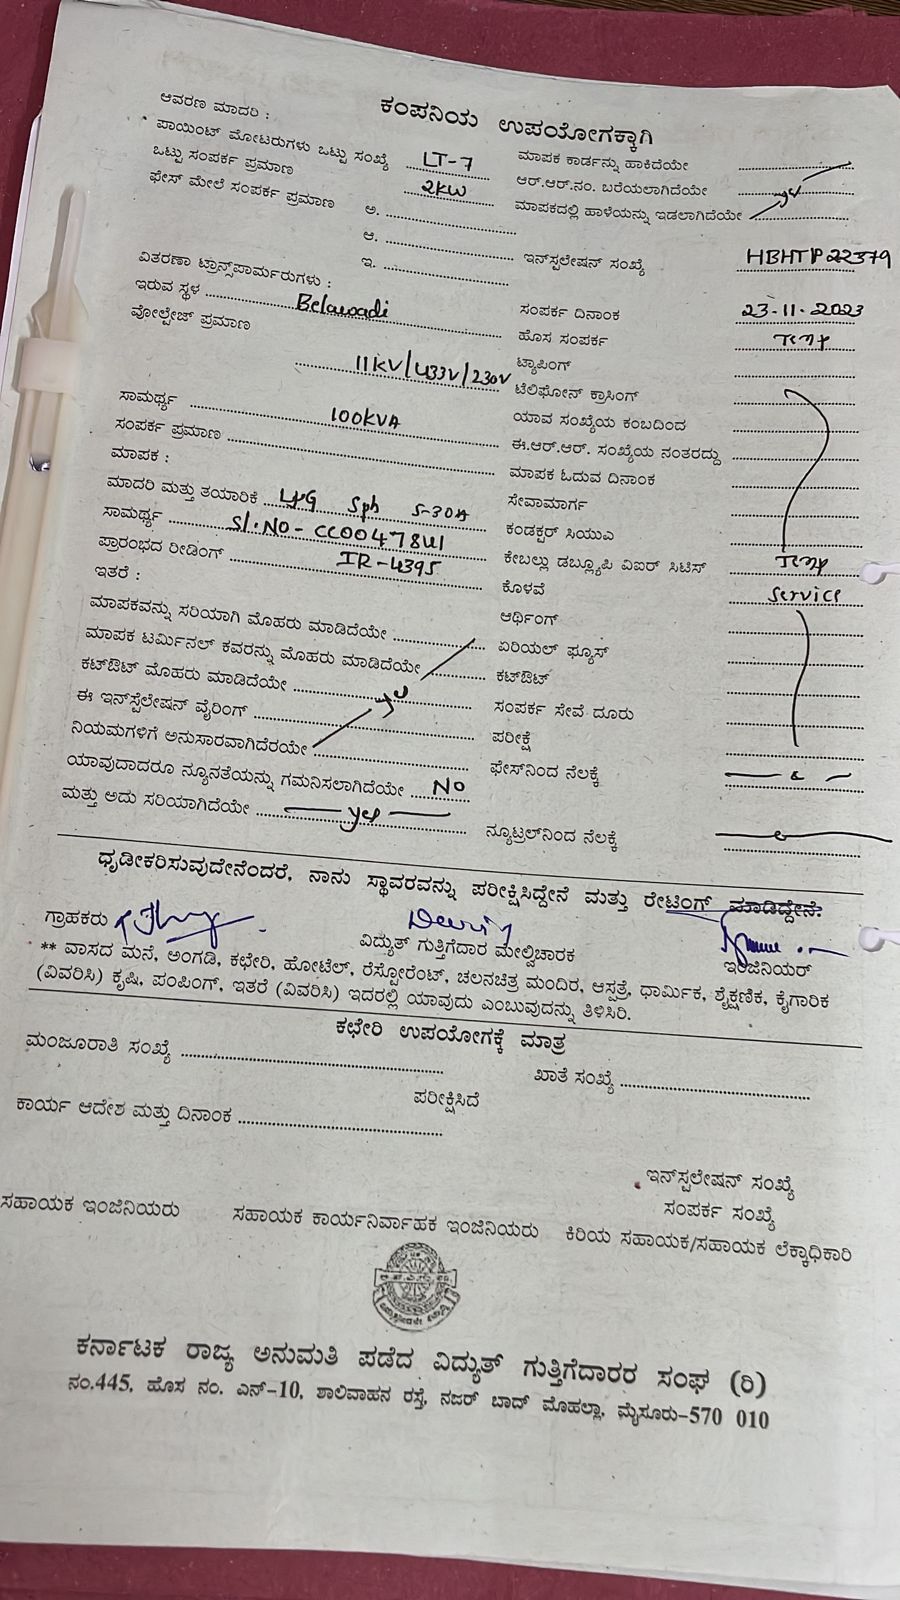 ಕಂಪನಿಯ ಉಪಯೋಗಕ್ಕಾಗಿ
ಆವರಣ ಮಾದರಿ :
ಪಾಯಿಂಟ್ ಮೋಟರುಗಳು ಒಟ್ಟು ಸಂಖ್ಯೆ LT-7
ಒಟ್ಟು ಸಂಪರ್ಕ ಪ್ರಮಾಣ 2KW
ಫೇಸ್ ಮೇಲೆ ಸಂಪರ್ಕ ಪ್ರಮಾಣ ಅ.
ಆ.
ಇ.
ವಿತರಣಾ ಟ್ರಾನ್ಸ್‌ಫಾರ್ಮರುಗಳು :
ಇರುವ ಸ್ಥಳ Belawadi
ವೋಲ್ಟೇಜ್ ಪ್ರಮಾಣ
11KV/433V/230V
ಸಾಮರ್ಥ್ಯ 100KVA
ಸಂಪರ್ಕ ಪ್ರಮಾಣ
ಮಾಪಕ :
ಮಾದರಿ ಮತ್ತು ತಯಾರಿಕೆ Sph 5-30A
ಸಾಮರ್ಥ್ಯ Sl.NO-
ಪ್ರಾರಂಭದ ರೀಡಿಂಗ್ IR-4395
ಇತರೆ :
ಮಾಪಕವನ್ನು ಸರಿಯಾಗಿ ಮೊಹರು ಮಾಡಿದೆಯೇ
ಮಾಪಕ ಟರ್ಮಿನಲ್ ಕವರನ್ನು ಮೊಹರು ಮಾಡಿದೆಯೇ
ಕಟ್‌ಔಟ್ ಮೊಹರು ಮಾಡಿದೆಯೇ
ಈ ಇನ್‌ಸ್ಟೆಲೇಷನ್ ವೈರಿಂಗ್
ನಿಯಮಗಳಿಗೆ ಅನುಸಾರವಾಗಿದೆರಯೇ
ಯಾವುದಾದರೂ ನ್ಯೂನತೆಯನ್ನು ಗಮನಿಸಲಾಗಿದೆಯೇ NO
ಮತ್ತು ಅದು ಸರಿಯಾಗಿದೆಯೇ yes
ಮಾಪಕ ಕಾರ್ಡನ್ನು ಹಾಕಿದೆಯೇ
ಆರ್.ಆರ್.ನಂ. ಬರೆಯಲಾಗಿದೆಯೇ
ಮಾಪಕದಲ್ಲಿ ಹಾಳೆಯನ್ನು ಇಡಲಾಗಿದೆಯೇ
ಇನ್‌ಸ್ಟಲೇಷನ್ ಸಂಖ್ಯೆ HBHTP22379
ಸಂಪರ್ಕ ದಿನಾಂಕ 23-11-2023
ಹೊಸ ಸಂಪರ್ಕ Temp
ಟ್ಯಾಪಿಂಗ್
ಟೆಲಿಫೋನ್ ಕ್ರಾಸಿಂಗ್
ಯಾವ ಸಂಖ್ಯೆಯ ಕಂಬದಿಂದ
ಈ.ಆರ್.ಆರ್. ಸಂಖ್ಯೆಯ ನಂತರದ್ದು
ಮಾಪಕ ಓದುವ ದಿನಾಂಕ
ಸೇವಾಮಾರ್ಗ
ಕಂಡಕ್ಟರ್ ಸಿಯುಎ
ಕೇಬಲ್ಲು ಡಬ್ಲ್ಯೂಪಿ ವಿಐರ್ ಸಿಟಿಸ್ Temp
ಕೊಳವೆ Service
ಆರ್ಥಿಂಗ್
ಏರಿಯಲ್ ಫ್ಯೂಸ್
ಕಟ್‌ಔಟ್
ಸಂಪರ್ಕ ಸೇವೆ ದೂರು
ಪರೀಕ್ಷೆ
ಫೇಸ್‌ನಿಂದ ನೆಲಕ್ಕೆ
ನ್ಯೂಟ್ರಲ್‌ನಿಂದ ನೆಲಕ್ಕೆ
ಧೃಡೀಕರಿಸುವುದೇನೆಂದರೆ, ನಾನು ಸ್ಥಾವರವನ್ನು ಪರೀಕ್ಷಿಸಿದ್ದೇನೆ ಮತ್ತು ರೇಟಿಂಗ್ ಮಾಡಿದ್ದೇನೆ:
ಗ್ರಾಹಕರು ವಿದ್ಯುತ್ ಗುತ್ತಿಗೆದಾರ ಮೇಲ್ವಿಚಾರಕ ಇಂಜಿನಿಯರ್
** ವಾಸದ ಮನೆ, ಅಂಗಡಿ, ಕಛೇರಿ, ಹೋಟೆಲ್, ರೆಸ್ಟೋರೆಂಟ್, ಚಲನಚಿತ್ರ ಮಂದಿರ, ಆಸ್ಪತ್ರೆ, ಧಾರ್ಮಿಕ, ಶೈಕ್ಷಣಿಕ, ಕೈಗಾರಿಕ
(ವಿವರಿಸಿ) ಕೃಷಿ, ಪಂಪಿಂಗ್, ಇತರೆ (ವಿವರಿಸಿ) ಇದರಲ್ಲಿ ಯಾವುದು ಎಂಬುವುದನ್ನು ತಿಳಿಸಿರಿ.
ಕಛೇರಿ ಉಪಯೋಗಕ್ಕೆ ಮಾತ್ರ
ಮಂಜೂರಾತಿ ಸಂಖ್ಯೆ ಖಾತೆ ಸಂಖ್ಯೆ
ಪರೀಕ್ಷಿಸಿದೆ
ಕಾರ್ಯ ಆದೇಶ ಮತ್ತು ದಿನಾಂಕ
ಇನ್‌ಸ್ಟಲೇಷನ್ ಸಂಖ್ಯೆ
ಸಂಪರ್ಕ ಸಂಖ್ಯೆ
ಸಹಾಯಕ ಇಂಜಿನಿಯರು ಸಹಾಯಕ ಕಾರ್ಯನಿರ್ವಾಹಕ ಇಂಜಿನಿಯರು ಕಿರಿಯ ಸಹಾಯಕ/ಸಹಾಯಕ ಲೆಕ್ಕಾಧಿಕಾರಿ
ಕರ್ನಾಟಕ ರಾಜ್ಯ ಅನುಮತಿ ಪಡೆದ ವಿದ್ಯುತ್ ಗುತ್ತಿಗೆದಾರರ ಸಂಘ (ರಿ)
ನಂ.445, ಹೊಸ ನಂ. ಎನ್-10, ಶಾಲಿವಾಹನ ರಸ್ತೆ, ನಜರ್ ಬಾದ್ ಮೊಹಲ್ಲಾ, ಮೈಸೂರು-570 010